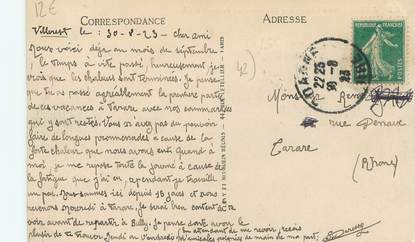 12€
CORRESPONDANCE
ADRESSE
Villerest le : 30-8-23 - Cher ami
Nous voici déjà au mois de septembre
le temps a vite passé, heureusement je
crois que les chaleurs sont terminées, je pense
que tu as passé agréablement la première partie
de ces vacances à Tarare avec nos camarades
qui y sont restés. Vous n'avez pas du pouvoir
faire de longues promenades à cause de la
forte chaleur que nous avons eu. Quand à
moi je me repose toute la journée à cause de
la fatigue que j'ai eu, cependant je travaille
un peu. Nous sommes ici depuis 15 jours et nous
revenons à Tarare, je serai bien content de te
voir avant de repartir à Billy, je pense donc avoir le
plaisir de te trouver Jeudi ou Vendredi
En attendant de me revoir, reçois
amicales poignées de main de ma part.
42)
REPUBLIQUE FRANÇAISE
POSTES
TARARE
22 25
30-8
23
Monsieur René
rue
Tarare
(Rhône)